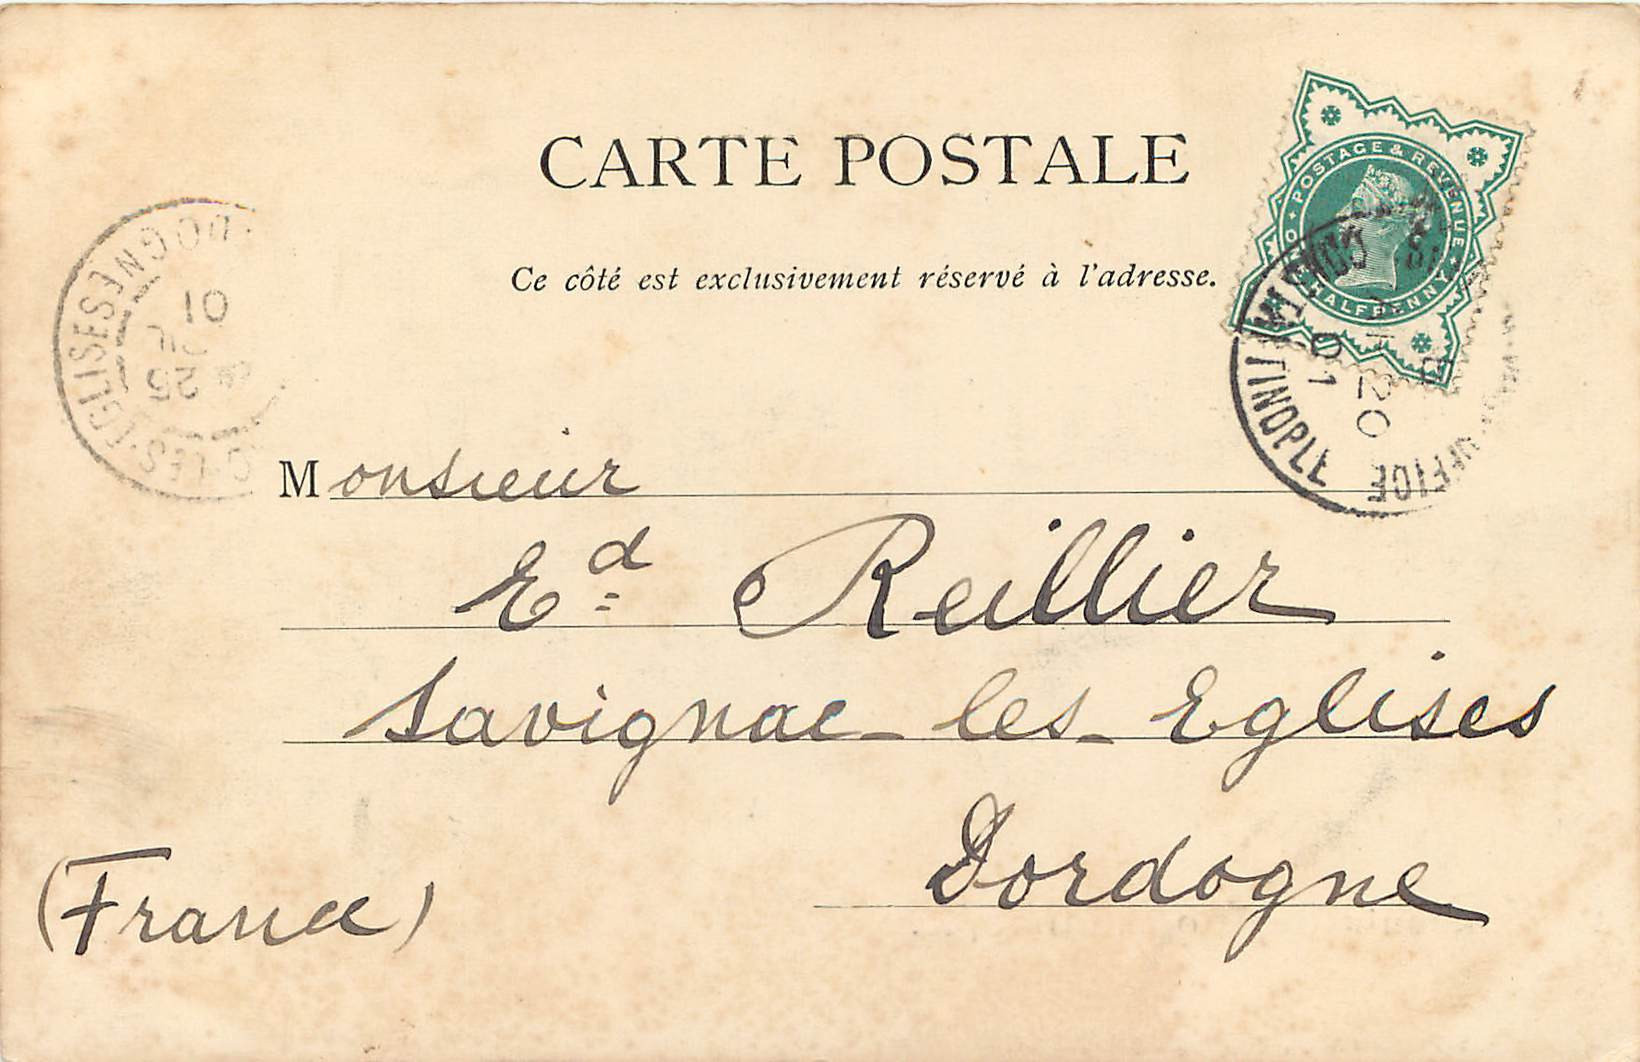 CARTE POSTALE
Ce côté est exclusivement réservé à l'adresse.
POSTAGE & REVENUE
HALFPENNY
OFFICE
20
01
DOGNE
LES-EGLISES
01
25
Monsieur
Ed Reillier
Savignac-les-Eglises
Dordogne
(France)